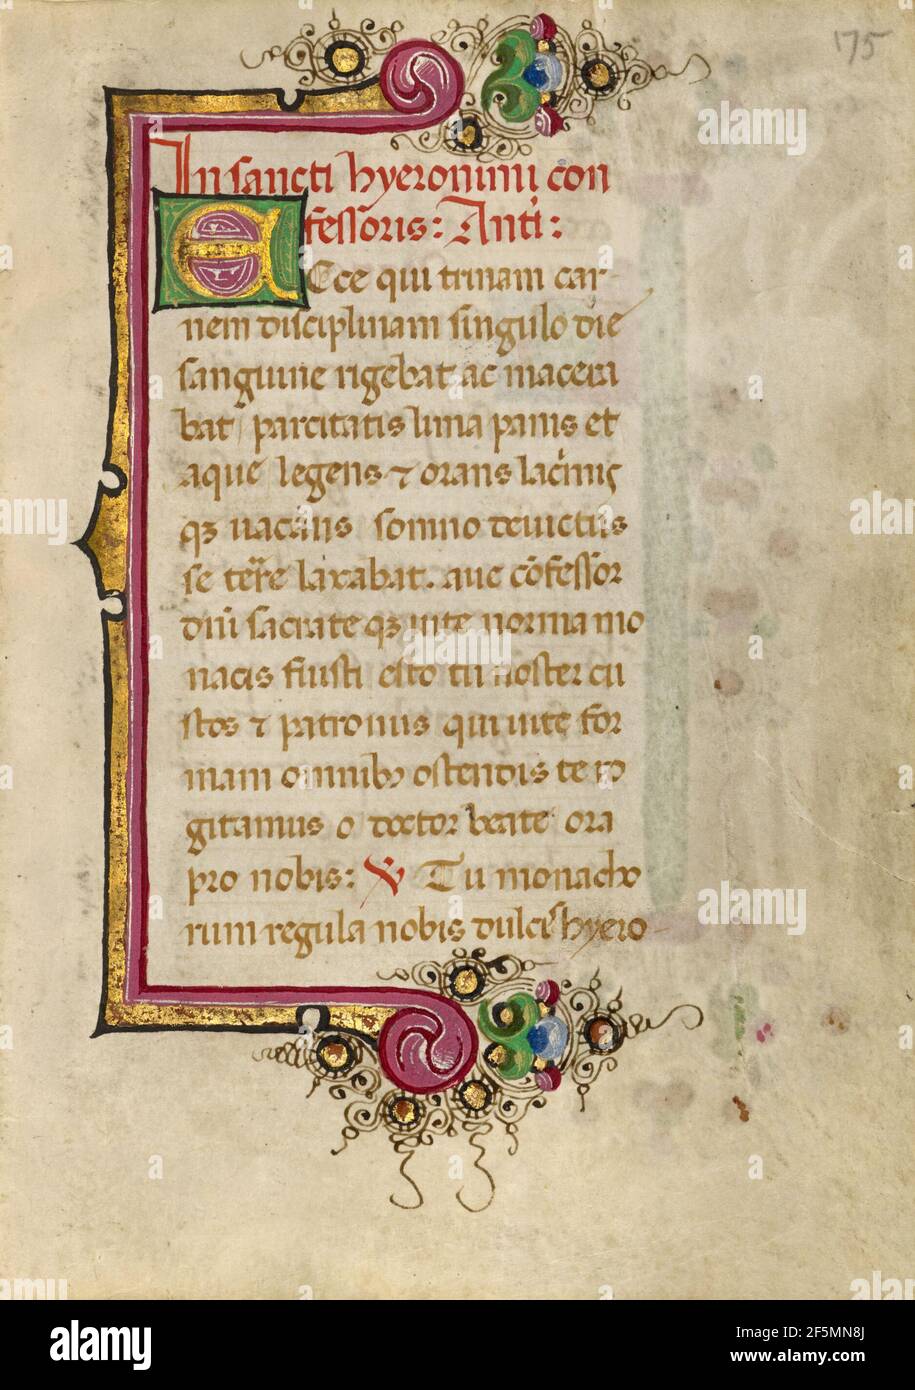 175
In sancti hyeronimi con
fessoris: Anti:
Ecce qui trinam car-
nem disciplinam singulo die
sanguine rigebat ac macera
bat parcitatis luna panis et
aque legens ⁊ orans lac̄mis
qꝫ uacans somno deuictus
se terre laxabat. aue cōfessor
dn̄i sacrate qꝫ uite norma mo
nacis fuisti esto tu noster cu
stos ⁊ patronus qui uite for
mam omnibꝫ ostendis te ro
gitamus o doctor beate ora
pro nobis: ℣ Tu monacho
rum regula nobis dulcis hyero-
alamy
Image ID: 2F5MN8J
www.alamy.com